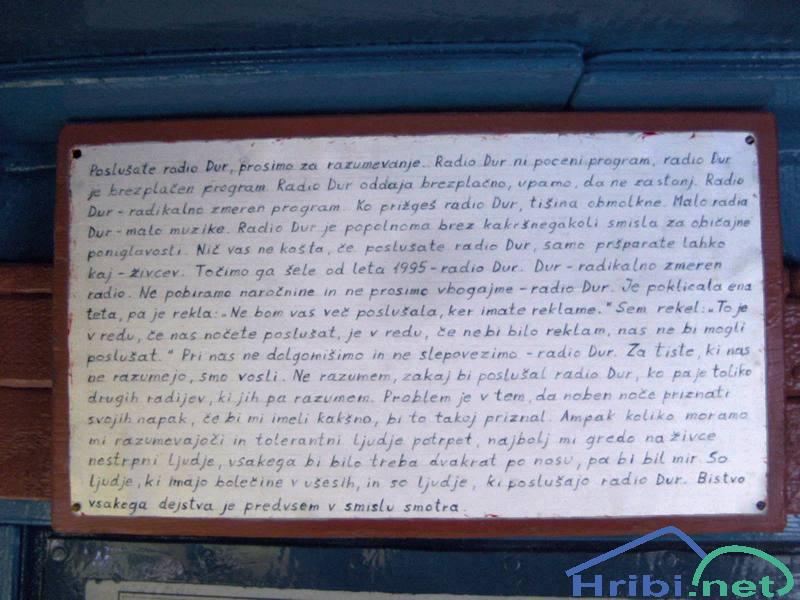 Poslušate radio Dur, prosimo za razumevanje. Radio Dur ni poceni program, radio Dur
je brezplačen program. Radio Dur oddaja brezplačno, upamo, da ne zastonj. Radio
Dur - radikalno zmeren program. Ko prižgeš radio Dur, tišina obmolkne. Malo radia
Dur - malo muzike. Radio Dur je popolnoma brez kakršnegakoli smisla za običajne
poniglavosti. Nič vas ne košta, če poslušate radio Dur, samo pršparate lahko
kaj - živcev. Točimo ga šele od leta 1995 - radio Dur. Dur - radikalno zmeren
radio. Ne pobiramo naročnine in ne prosimo vbogajme - radio Dur. Je poklicala ena
teta, pa je rekla: „Ne bom vas več poslušala, ker imate reklame." Sem rekel: „To je
v redu, če nas nočete poslušat, je v redu, če nebi bilo reklam, nas ne bi mogli
poslušat." Pri nas ne dolgomišimo in ne slepovezimo - radio Dur. Za tiste, ki nas
ne razumejo, smo vosli. Ne razumem, zakaj bi poslušal radio Dur, ko pa je toliko
drugih radijev, ki jih pa razumem. Problem je v tem, da noben noče priznati
svojih napak, če bi mi imeli kakšno, bi to takoj priznal. Ampak koliko moramo
mi razumevajoči in tolerantni ljudje potrpet, najbolj mi gredo na živce
nestrpni ljudje, vsakega bi bilo treba dvakrat po nosu, pa bi bil mir. So
ljudje, ki imajo bolečine v ušesih, in so ljudje, ki poslušajo radio Dur. Bistvo
vsakega dejstva je predvsem v smislu smotra
Hribi.net